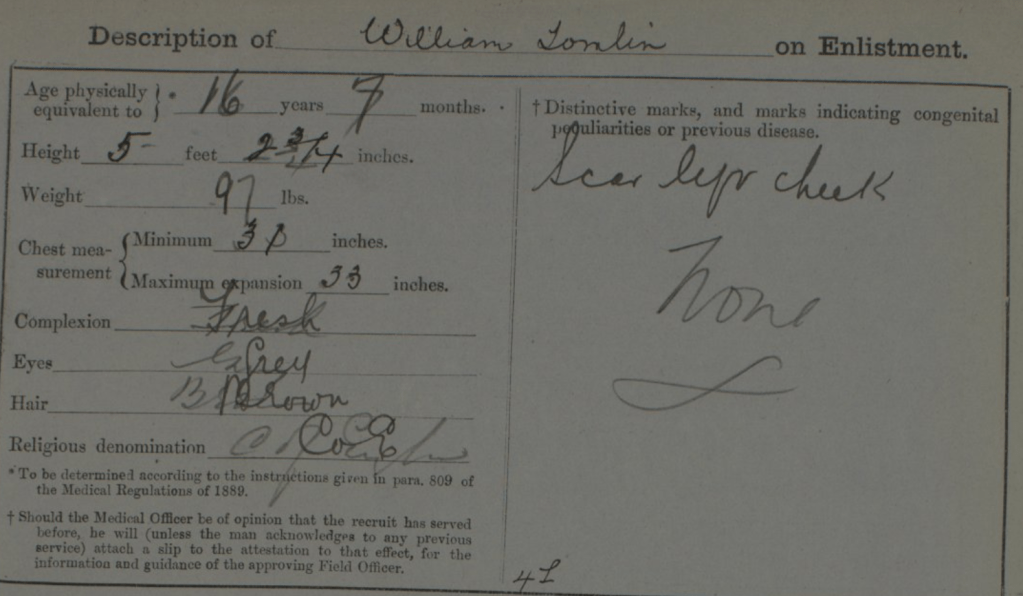 Description of William Tomlin on Enlistment.
Age physically equivalent to } * 16 years 7 months.
Height 5 feet 2 3/4 inches.
Weight 97 lbs.
Chest mea-surement { Minimum 30 inches.
Maximum expansion 33 inches.
Complexion Fresh
Eyes Grey
Hair Brown
Religious denomination C of E
* To be determined according to the instructions given in para. 809 of
the Medical Regulations of 1889.
† Should the Medical Officer be of opinion that the recruit has served
before, he will (unless the man acknowledges to any previous
service) attach a slip to the attestation to that effect, for the
information and guidance of the approving Field Officer.
† Distinctive marks, and marks indicating congenital
peculiarities or previous disease.
Scar cheek
None